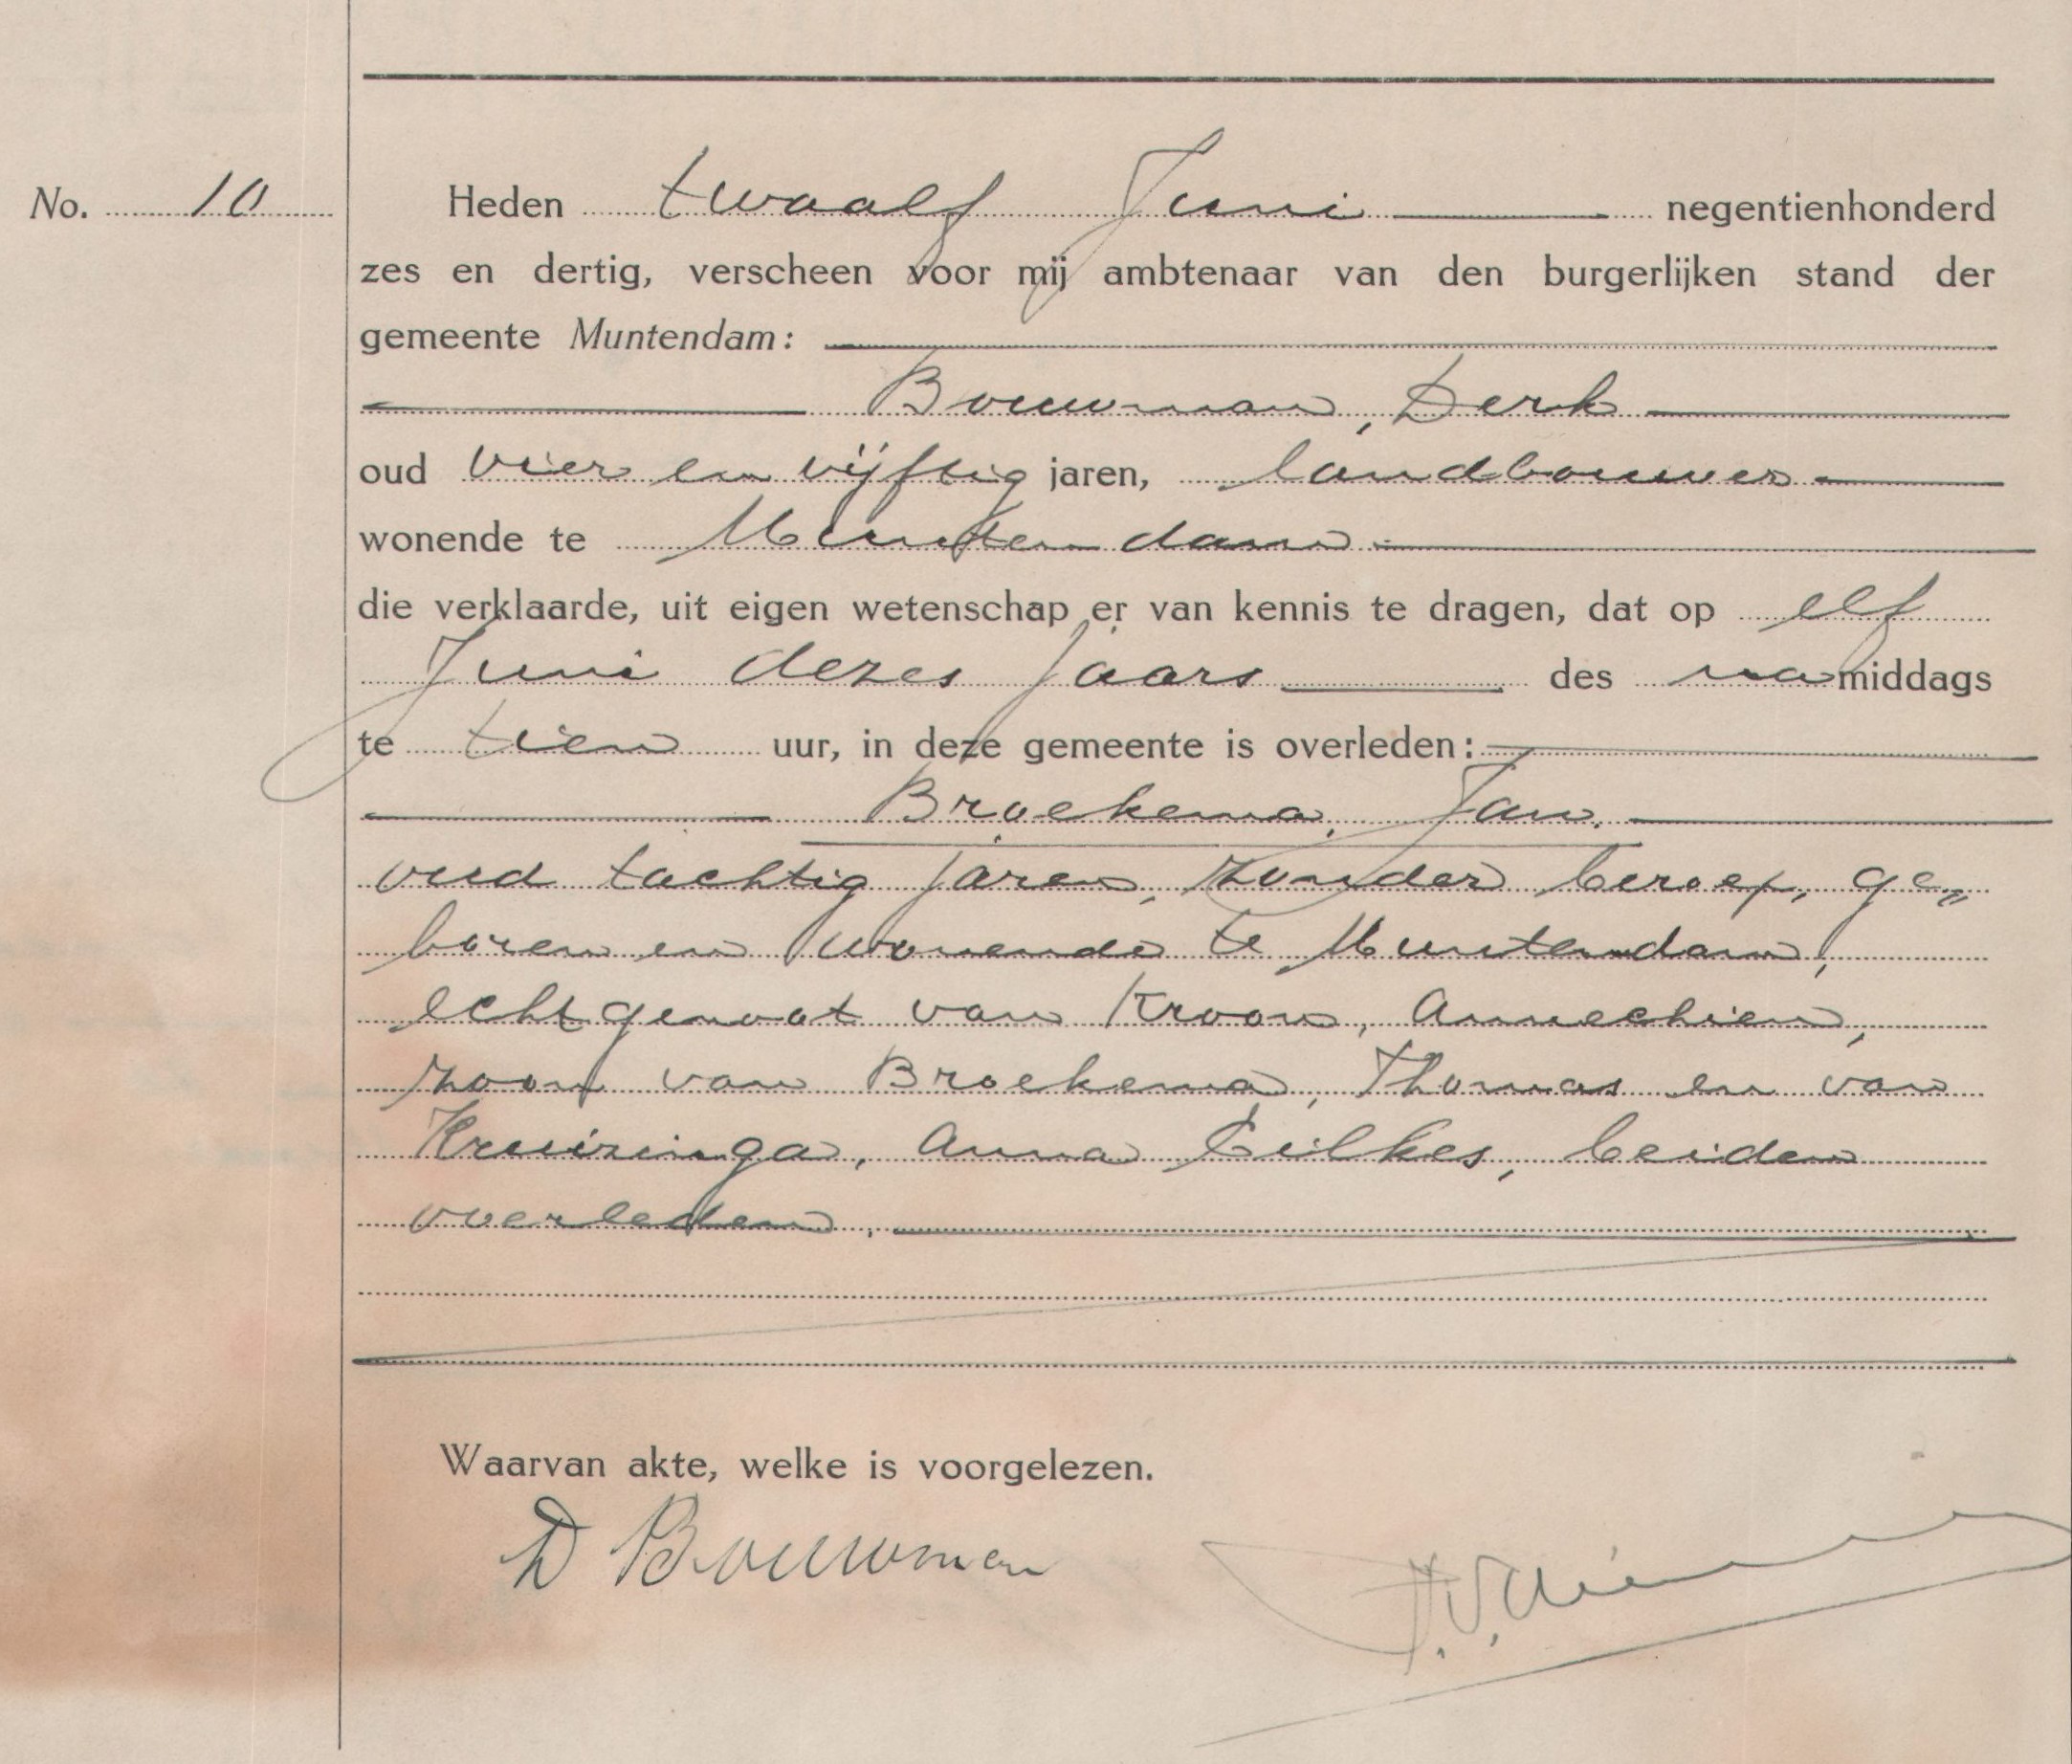 No. 10
Heden twaalf Juni negentienhonderd
zes en dertig, verscheen voor mij ambtenaar van den burgerlijken stand der
gemeente Muntendam:
Bouwman, Derk
oud vier en vijftig jaren, landbouwer
wonende te Muntendam
die verklaarde, uit eigen wetenschap er van kennis te dragen, dat op elf
Juni dezes jaars des namiddags
te tien uur, in deze gemeente is overleden:
Broekema, Jan.
oud tachtig jaren, zonder beroep, ge„
boren en wonende te Muntendam,
echtgenoot van Kroon, Annechien,
zoon van Broekema, Thomas en van
Kruizinga, Anna Eilkes, beiden
overleden.
Waarvan akte, welke is voorgelezen.
D Bouwman